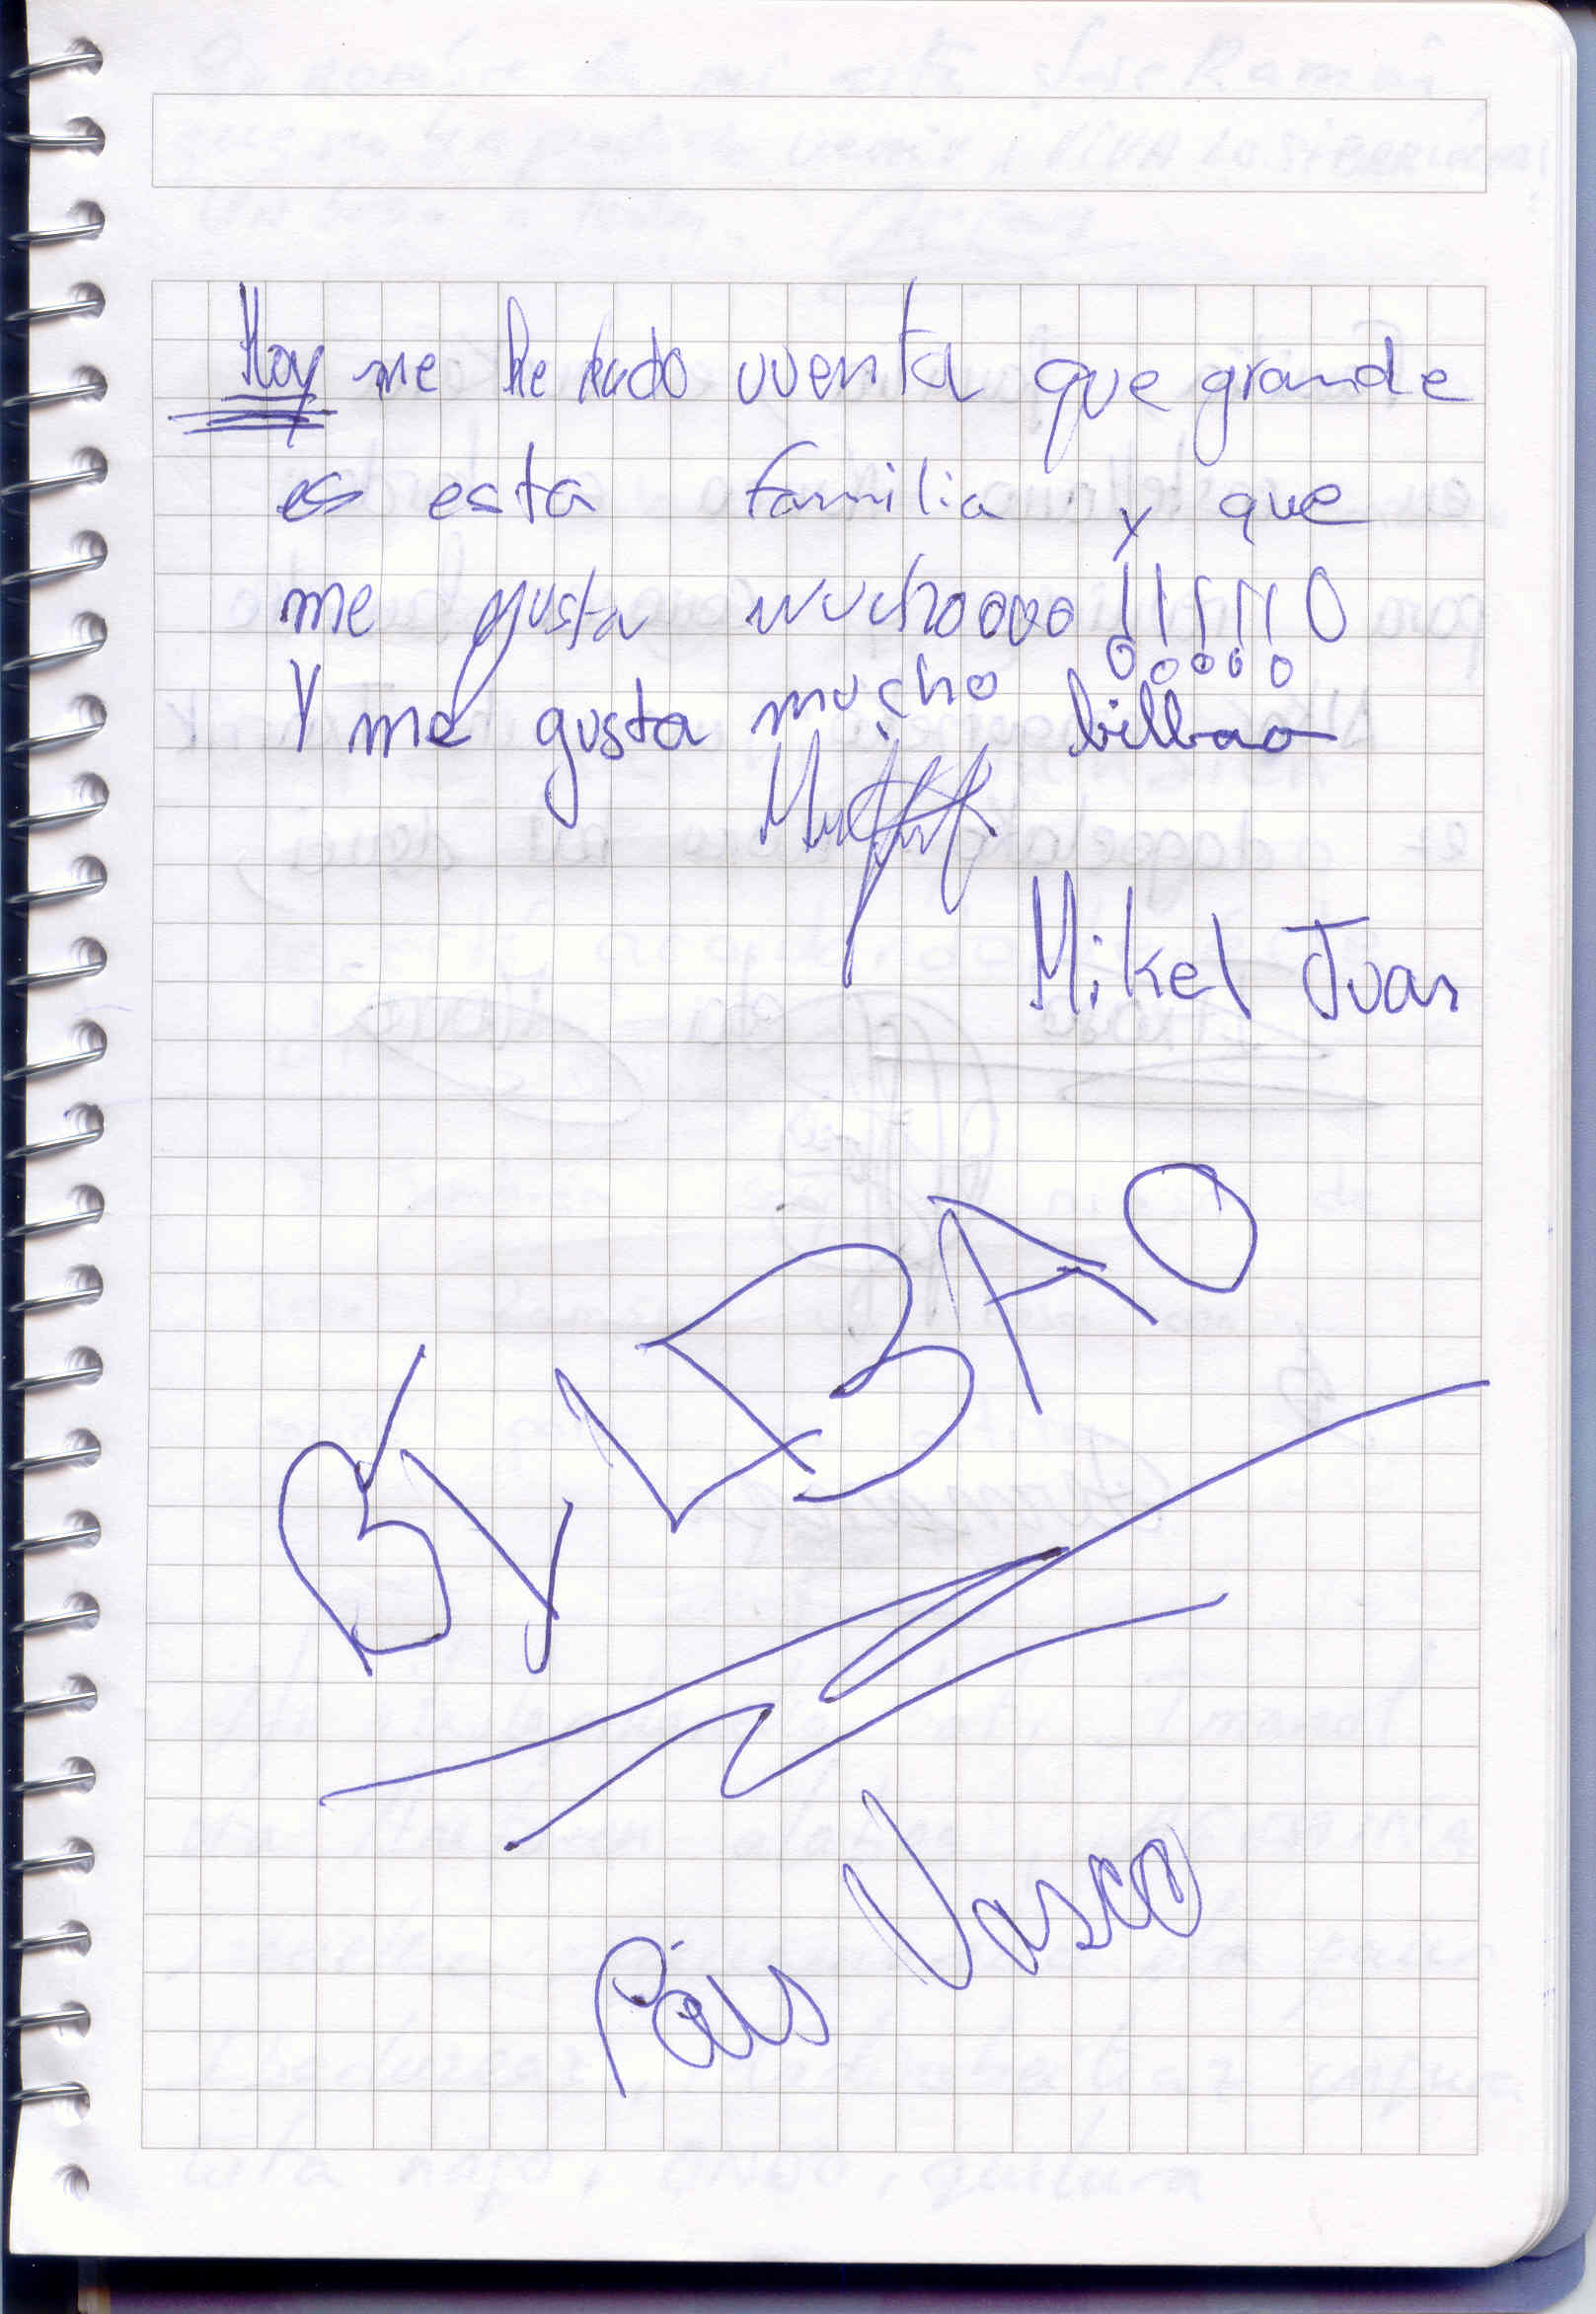 Hoy me he dado cuenta que grande
es esta familia y que
me gusta muchoooo !!!!!!
Y me gusta mucho bilbao
Mikel Juan
BYLBAO
País Vasco